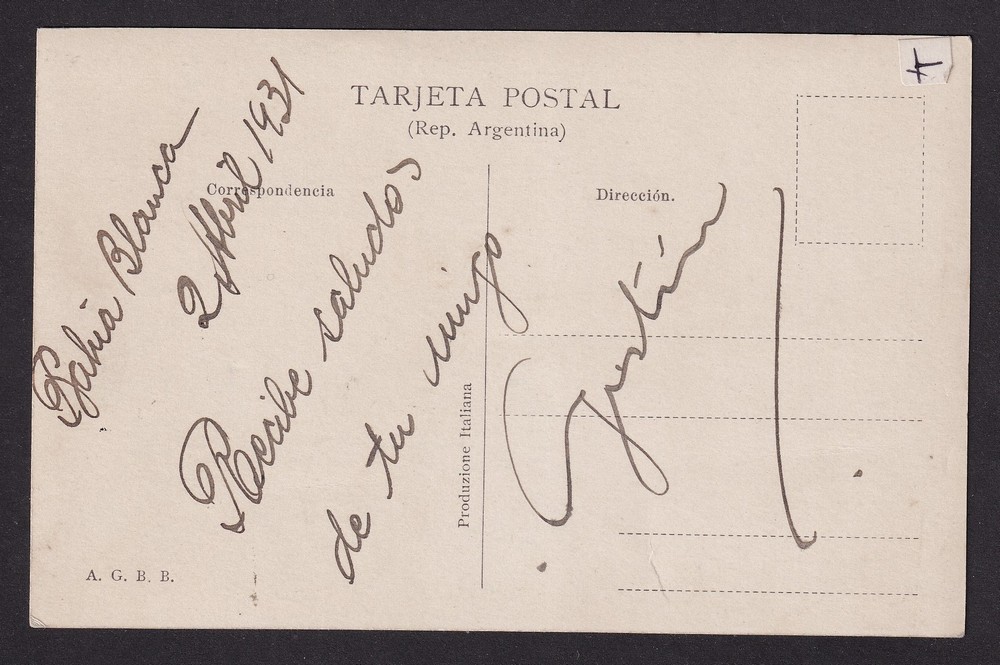 TARJETA POSTAL
(Rep. Argentina)
Correspondencia
Dirección.
Bahia Blanca
2 Abril 1931
Recibe saludos
de tu amigo
Produzione Italiana
A. G. B. B.